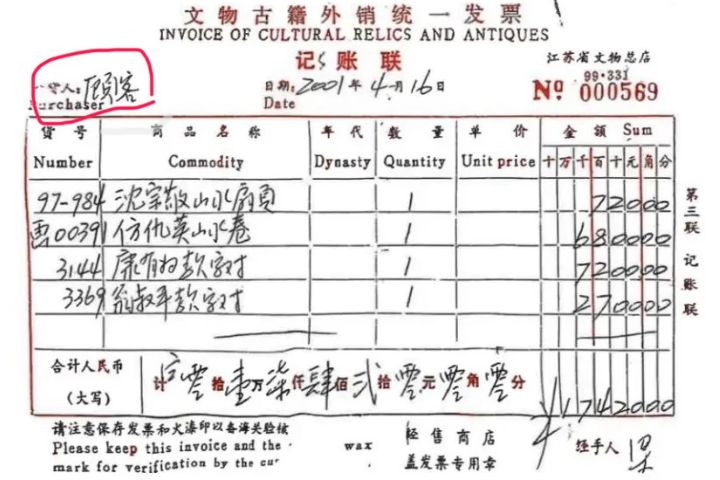 文物古籍外销统一发票
INVOICE OF CULTURAL RELICS AND ANTIQUES
记账联
江苏省文物总店
货人:顾客
日期:2001年4月16日
99·331
Purchaser
Date
No 000569
貨号 商品名称 年代 数量 单价 金额 Sum
Number Commodity Dynasty Quantity Unit price 十万千百十元角分
97-984 沈宗敬山水扇页 1 72000
画00391 仿仇英山水卷 1 680000
3144 康有为款字对 1 720000
3369 翁叔平款字对 1 270000
合计人民币
(大写)
计 零拾壹万柒仟肆佰贰拾零元零角零分
¥1742000
第三联 记账联
请注意保存发票和火漆印以备海关验核
Please keep this invoice and the wax
mark for verification by the
经售商店
盖发票专用章
经手人 梁